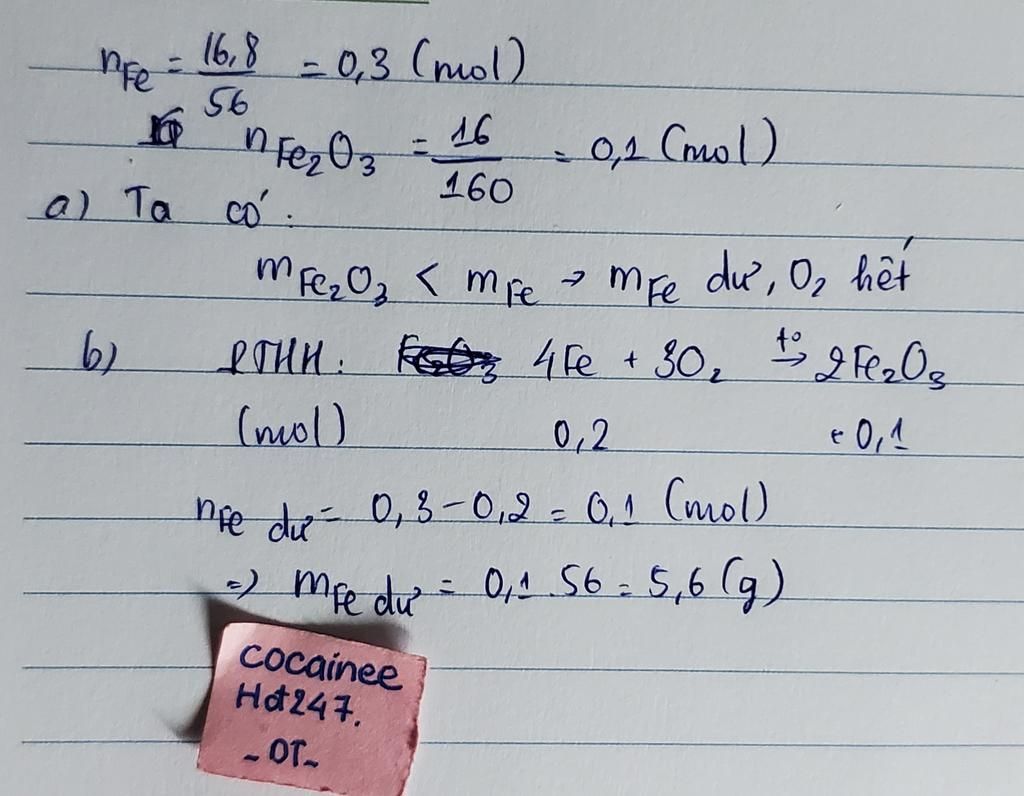 nFe = 16,8/56 = 0,3 (mol)
nFe₂O₃ = 16/160 = 0,1 (mol)
a) Ta có:
mFe₂O₃ < mFe → mFe dư, O₂ hết
b) PTHH: 4Fe + 3O₂ t°→ 2Fe₂O₃
(mol) 0,2 ← 0,1
nFe dư = 0,3 - 0,2 = 0,1 (mol)
=) mFe dư = 0,1 . 56 = 5,6 (g)
cocainee
Hd247.
- OT -